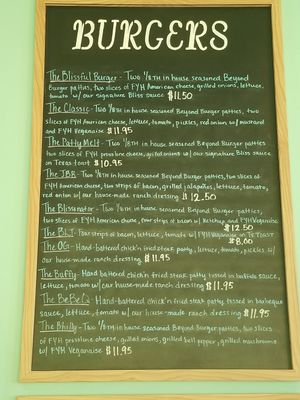 BURGERS
The Blissful Burger - Two 1/8TH in house seasoned Beyond
Burger patties, two slices of FYH American cheese, grilled onions, lettuce,
tomato w/ our signature Bliss sauce $11.50
The Classic - Two 1/8TH in house seasoned Beyond Burger patties, two
slices of FYH American cheese, lettuce, tomato, pickles, red onion w/ mustard
and FYH Vegenaise $11.95
The Patty Melt - Two 1/8TH in house seasoned Beyond Burger patties
two slices of FYH provolone cheese, grilled onions w/ our signature Bliss sauce
on Texas toast $10.95
The JBR - Two 1/8TH in house seasoned Beyond Burger patties, two slices of
FYH American cheese, two strips of bacon, grilled jalapeños, lettuce, tomato,
red onion w/ our house-made ranch dressing $12.50
The Blissnator - Two 1/8TH in house seasoned Beyond Burger patties,
two slices of FYH American cheese, four strips of bacon w/ Ketchup and FYH Vegenaise
$12.50
The BLT - Four strips of bacon, lettuce, tomato w/ FYH Vegenaise on TX TOAST
$8.00
The OG - Hand-battered chick'n fried steak patty, lettuce, tomato, pickles w/
our house-made ranch dressing $11.95
The Buffy - Hand battered chick'n fried steak patty tossed in buffalo sauce,
lettuce, tomato w/ our house-made ranch dressing $11.95
The BeBeQ - Hand-battered chick'n fried steak patty tossed in barbeque
sauce, lettuce, tomato w/ our house-made ranch dressing $11.95
The Philly - Two 1/8TH in house seasoned Beyond Burger patties, two slices
of FYH provolone cheese, grilled onions, grilled bell pepper, grilled mushrooms
w/ FYH Vegenaise $11.95